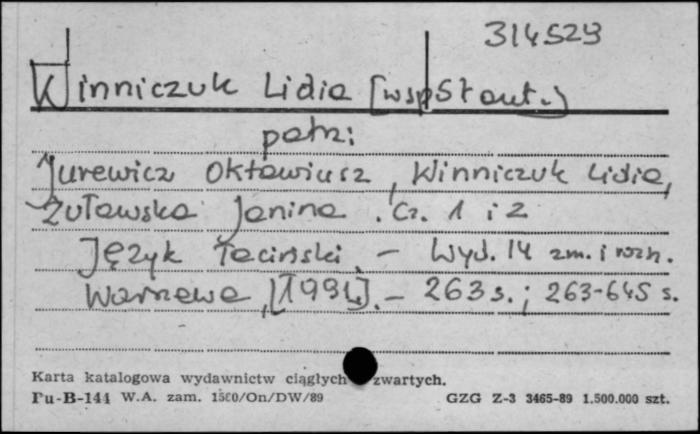 314529
Winniczuk Lidia [współaut.]
patrz:
Jurewicz Oktawiusz, Winniczuk Lidia,
Żuławska Janina. Cz. 1 i 2
Język łaciński. - Wyd. 14 zm. i rozsz.
Warszawa, [1991]. - 263 s.; 263-645 s.
Karta katalogowa wydawnictw ciągłych zwartych.
Pu-B-144 W.A. zam. 1500/On/DW/89 GZG Z-3 3465-89 1.500.000 szt.